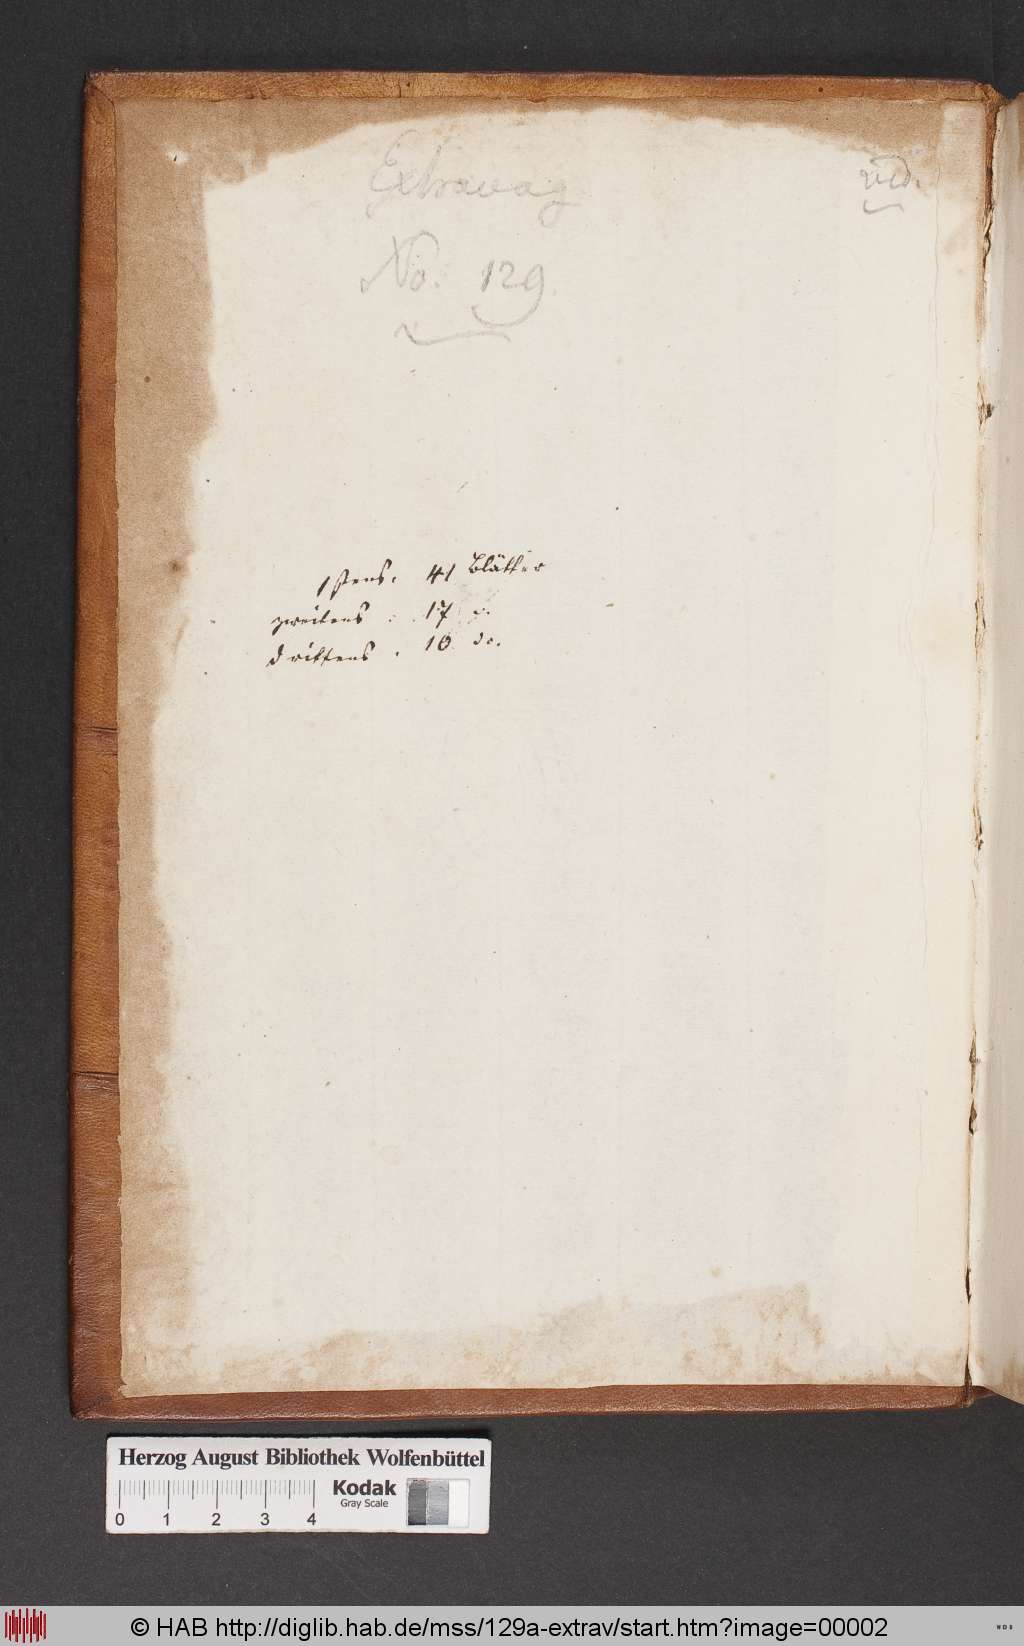 Extravag
No. 129.
1stens. 41 Blätter
zweitens . 17 do.
drittens . 10 do.
Herzog August Bibliothek Wolfenbüttel
Kodak
Gray Scale
0 1 2 3 4
© HAB http://diglib.hab.de/mss/129a-extrav/start.htm?image=00002